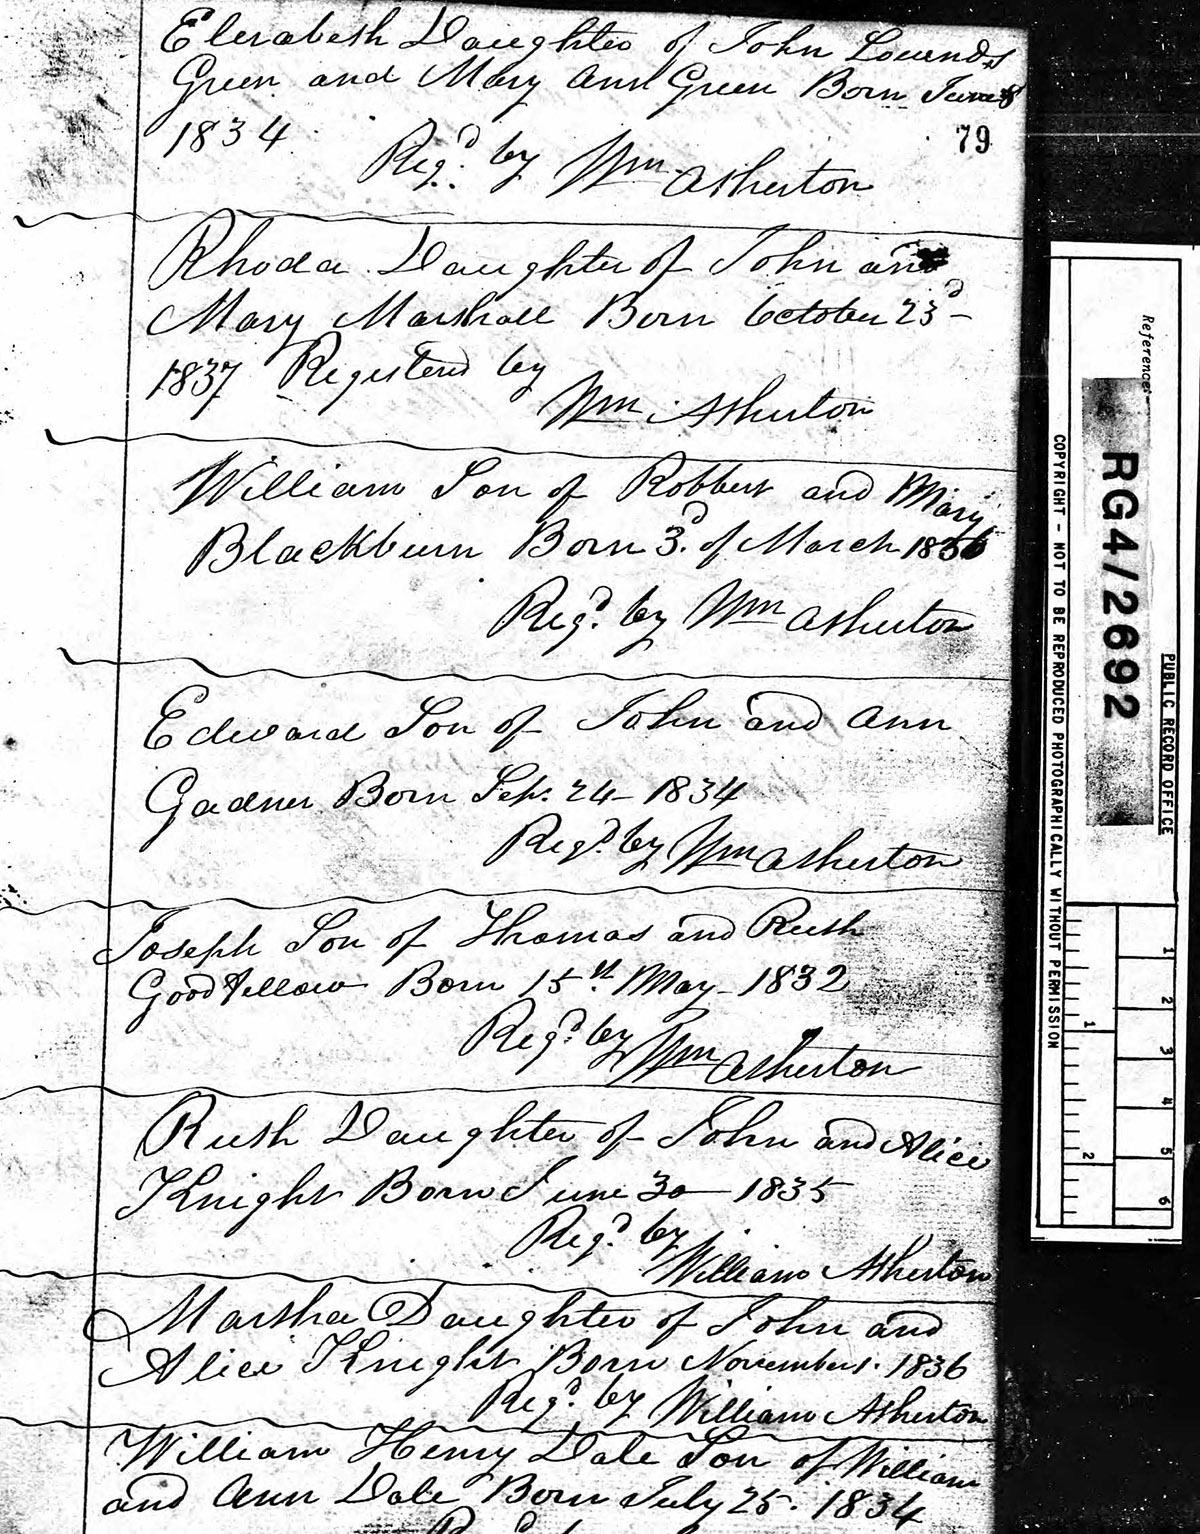 Elizabeth Daughter of John Lownds
Green and Mary Ann Green Born June 8
1834
79
Regd. by Wm Asherton
Rhoda Daughter of John and
Mary Marshall Born October 23d
1837 Registerd by
Wm Asherton
William Son of Robbert and Mary
Blackburn Born 3d. of March 1836
Regd. by Wm Asherton
Edward Son of John and Ann
Gadner Born Sep. 24 - 1834
Regd. by Wm Asherton
Joseph Son of Thomas and Ruth
Goodfellow Born 15st. May - 1832
Regd. by
Wm Asherton
Ruth Daughter of John and Alice
Knight Born June 30 - 1835
Regd. by
William Asherton
Martha Daughter of John and
Alice Knight Born November 1. 1836
Regd. by William Asherton
William Henry Dale Son of William
and Ann Dale Born July 25. 1834
Reference:-
RG4/2692
PUBLIC RECORD OFFICE
COPYRIGHT - NOT TO BE REPRODUCED PHOTOGRAPHICALLY WITHOUT PERMISSION
1
2
3
4
5
6
1
2